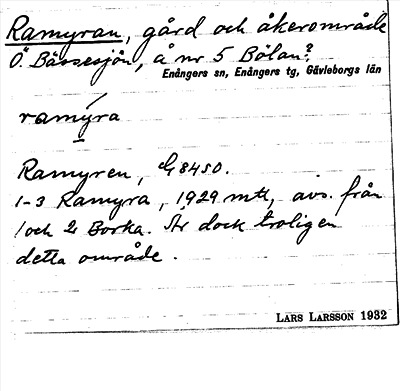 Ramyran, gård och åkerområde
Ö. Bässesjön, å nr 5 Bölan?
Enångers sn, Enångers tg, Gävleborgs län
ramýra
Ramyren, G8450.
1-3 Ramyra, 1929 mtl, avs. från
1 och 2 Borka. Är dock troligen
detta område.
LARS LARSSON 1932